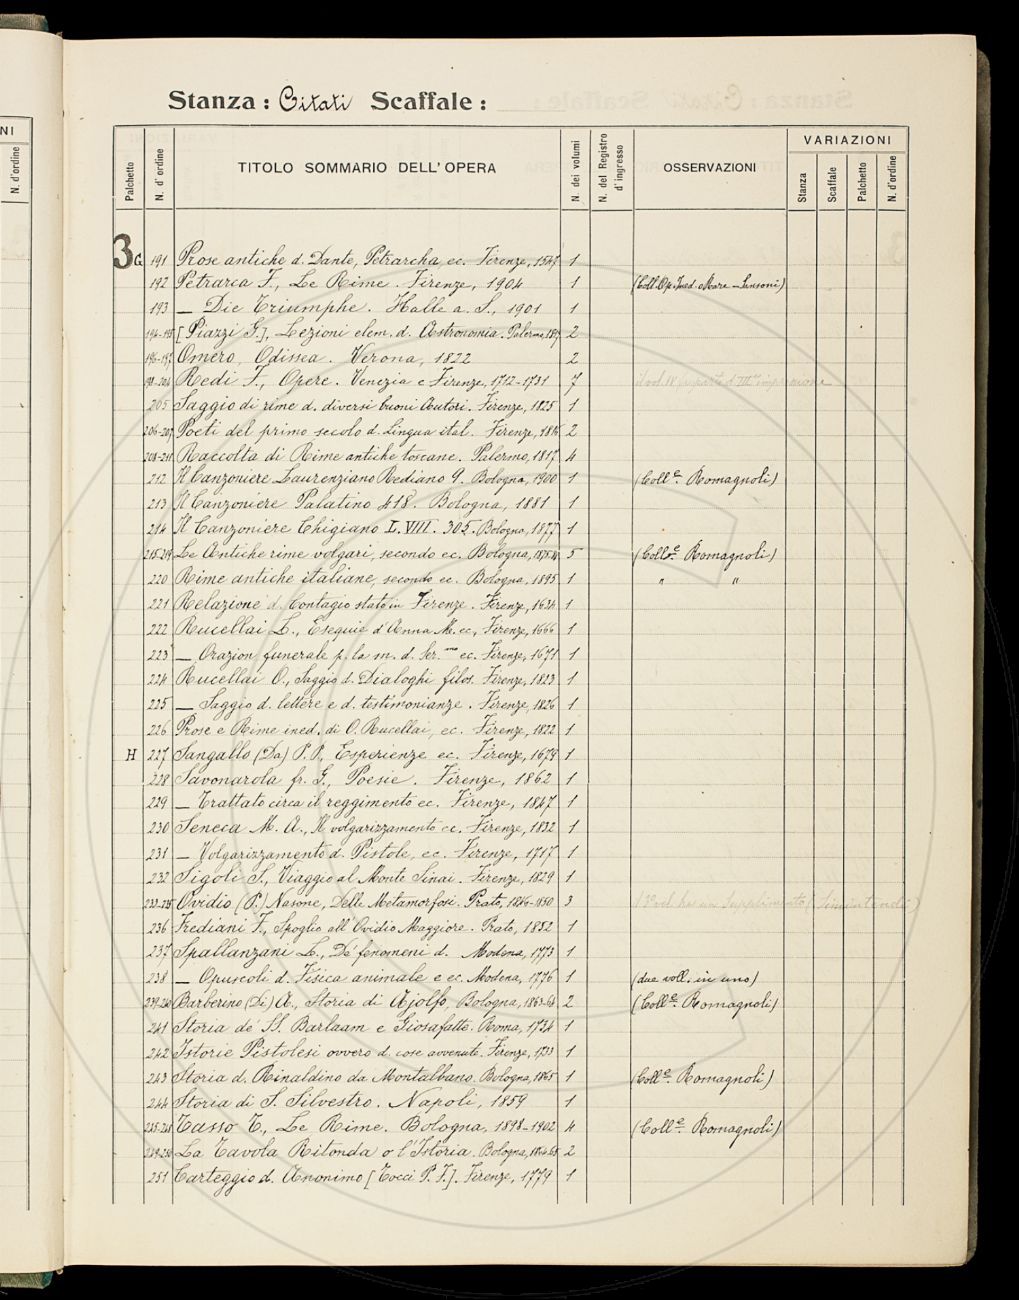 NI
N. d'ordine
Stanza: Citati Scaffale:
Palchetto
N. d'ordine
TITOLO SOMMARIO DELL'OPERA
N. dei volumi
N. del Registro d'ingresso
OSSERVAZIONI
VARIAZIONI
Stanza
Scaffale
Palchetto
N. d'ordine
3 G 191 Prose antiche d. Dante, Petrarcha, ec. Firenze, 1547 1
192 Petrarca F., Le Rime. Firenze, 1904 1 (Coll. Op. Ined. o Rare - Sansoni)
193 — Die Triumphe. Halle a. S., 1901 1
194-195 [Piazzi G.], Lezioni elem. d. Astronomia. Palermo, 1817 2
196-197 Omero, Odissea. Verona, 1822 2
198-204 Redi F., Opere. Venezia e Firenze, 1712-1731 7 il vol. IV
205 Saggio di rime d. diversi buoni Autori. Firenze, 1825 1
206-207 Poeti del primo secolo d. lingua ital. Firenze, 1816 2
208-211 Raccolta di Rime antiche toscane. Palermo, 1817 4
212 Il Canzoniere Laurenziano Rediano 9. Bologna, 1900 1 (Coll.e Romagnoli)
213 Il Canzoniere Palatino 418. Bologna, 1881 1
214 Il Canzoniere Chigiano L. VIII. 305. Bologna, 1877 1
215-219 Le Antiche rime volgari, secondo ec. Bologna, 1875-88 5 (Coll.e Romagnoli)
220 Rime antiche italiane, secondo ec. Bologna, 1895 1 " "
221 Relazione d. Contagio stato in Firenze. Firenze, 1634 1
222 Rucellai L., Esequie d'Anna M. ec., Firenze, 1666 1
223 — Orazion funerale p. la m. d. Ser.mo ec. Firenze, 1671 1
224 Rucellai O., Saggio d. Dialoghi filos. Firenze, 1823 1
225 — Saggio d. lettere e d. testimonianze. Firenze, 1826 1
226 Prose e Rime ined. di O. Rucellai, ec. Firenze, 1822 1
H 227 Sangallo (Da) P. P., Esperienze ec. Firenze, 1679 1
228 Savonarola fr. G., Poesie. Firenze, 1862 1
229 — Trattato circa il reggimento ec. Firenze, 1847 1
230 Seneca M. A., Il volgarizzamento ec. Firenze, 1832 1
231 — Volgarizzamento d. Pistole, ec. Firenze, 1717 1
232 Sigoli S., Viaggio al Monte Sinai. Firenze, 1829 1
233-235 Ovidio (P.) Nasone, Delle Metamorfosi. Prato, 1846-1850 3 Supplimento (Simintendi)
236 Frediani F., Spoglio all'Ovidio Maggiore. Prato, 1852 1
237 Spallanzani L., De' fenomeni d. Modena, 1773 1
238 — Opuscoli d. Fisica animale e ec. Modena, 1776 1 (due voll. in uno)
239-240 Barberino (Di) A., Storia di Ajolfo, Bologna, 1863-64 2 (Coll.e Romagnoli)
241 Storia de' SS. Barlaam e Giosafatto. Roma, 1734 1
242 Istorie Pistolesi ovvero d. cose avvenute. Firenze, 1733 1
243 Storia d. Rinaldino da Montalbano. Bologna, 1865 1 (Coll.e Romagnoli)
244 Storia di S. Silvestro. Napoli, 1859 1
245-248 Tasso T., Le Rime. Bologna, 1898-1902 4 (Coll.e Romagnoli)
249-250 La Tavola Ritonda o l'Istoria. Bologna, 1864-65 2
251 Carteggio d. Anonimo [Tocci P. F.]. Firenze, 1779 1